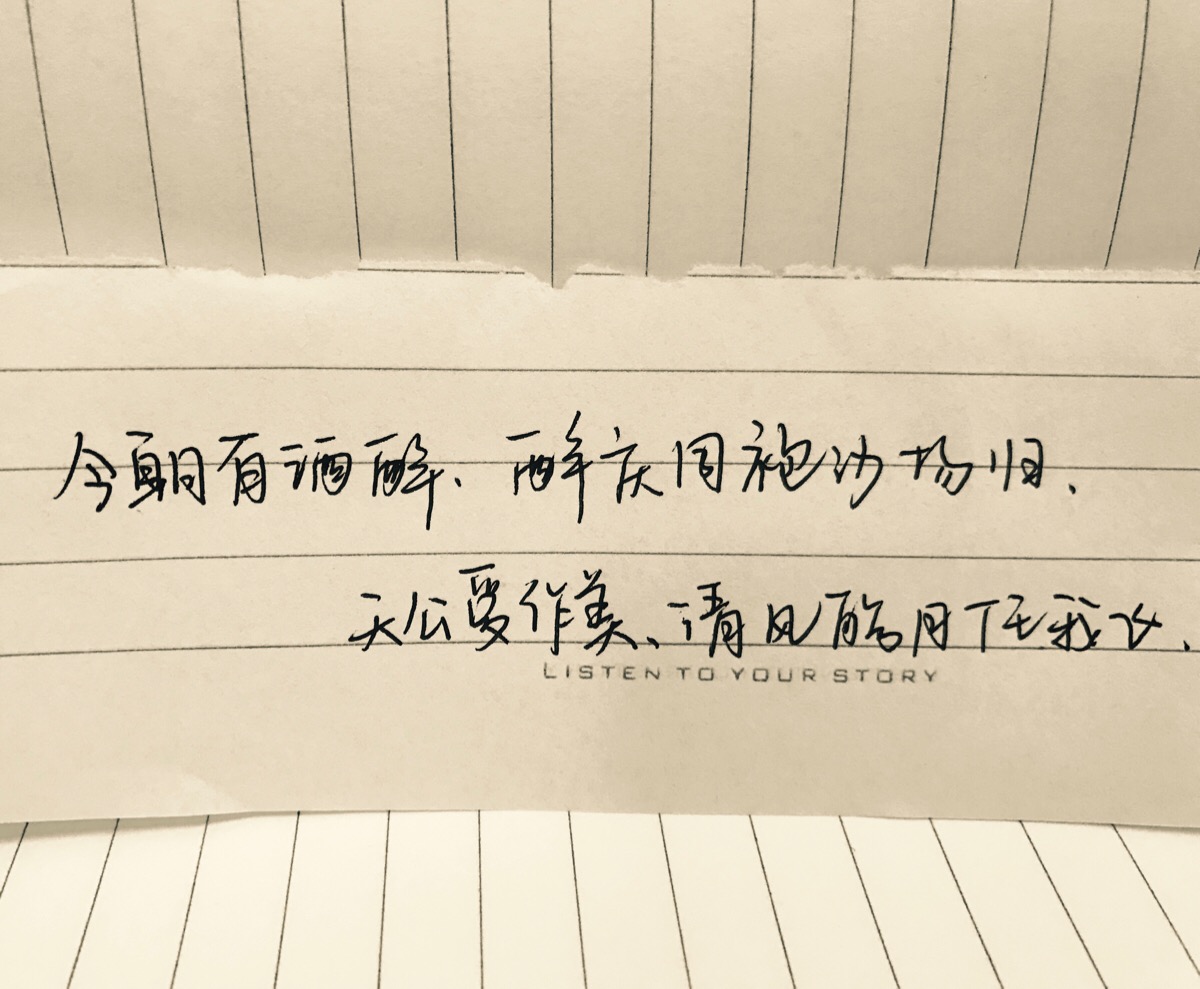 今朝有酒醉、醉庆同袍沙场归.
天公要作美、清风月任我飞.
LISTEN TO YOUR STORY